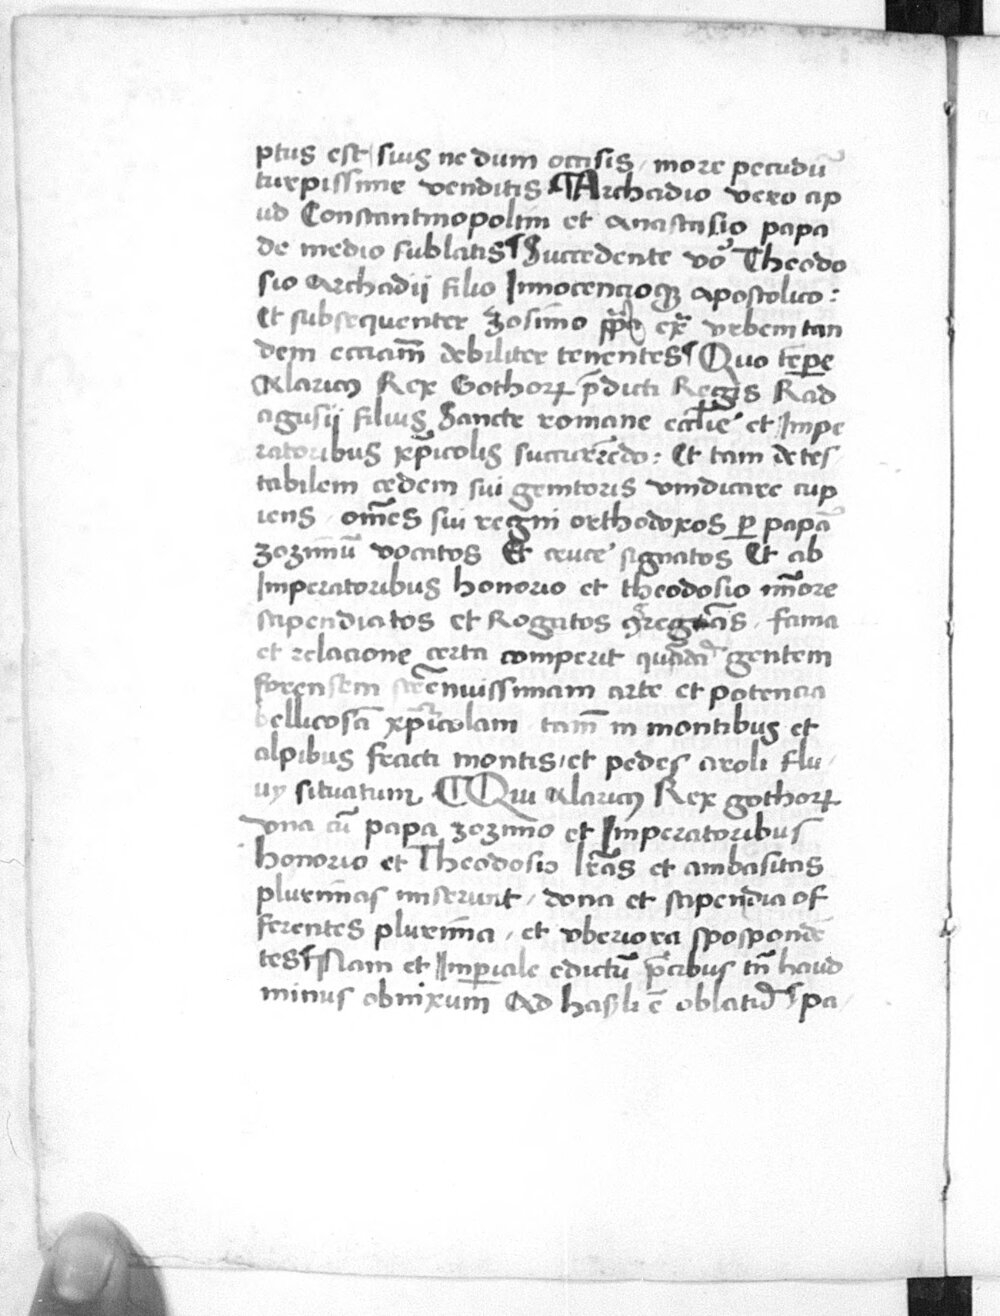 ptus est suis ne dum occisis / more pecudū
turpissime venditis ¶ Archadio vero ap
ud Constantinopolim et Anastasio papa
de medio sublatis ¶ Succedente vo᷑ Theodo
sio Archadij filio Innocencioqꝫ apostolico :
Et subsequenter zosimo ex᷑ vrbem tan
dem etciam̄ debiliter tenentes ¶ Quo tēpe
Alaricꝰ Rex Gothorꝝ p̄dicti Regis Rad
agusij filius Sancte romane eccl̄ie et Impe
ratoribus xp̄icolis succurrēdo : Et tam detes
tabilem cedem sui genitoris vindicare cup
iens / om̄es sui regni orthodoxos ꝑ papā
zozimū vocatos Et cruce signatos Et ab
Imperatoribus honorio et theodosio
stipendiatos et Rogatos / fama
et relacione certa comperit gentem
forensem strēnuissimam arte et potencia
bellicosā xp̄icolam / tam̄ in montibus et
alpibus fracti montis / et pedes aroli flu /
uy situatum ¶ Qui Alaricꝰ Rex gothorꝝ
vna cū papa zozimo et Imperatoribus
honorio et Theodosio lr̄as et ambasitas
plurimas miserunt / dona et stipendia of
ferentes plurima / et vberiora spospondē
tes ¶ Nam et Imꝑiale edictū p̄cibus tn̄ haud
minus obnixum Ad hasli ē oblatū ¶ pa /